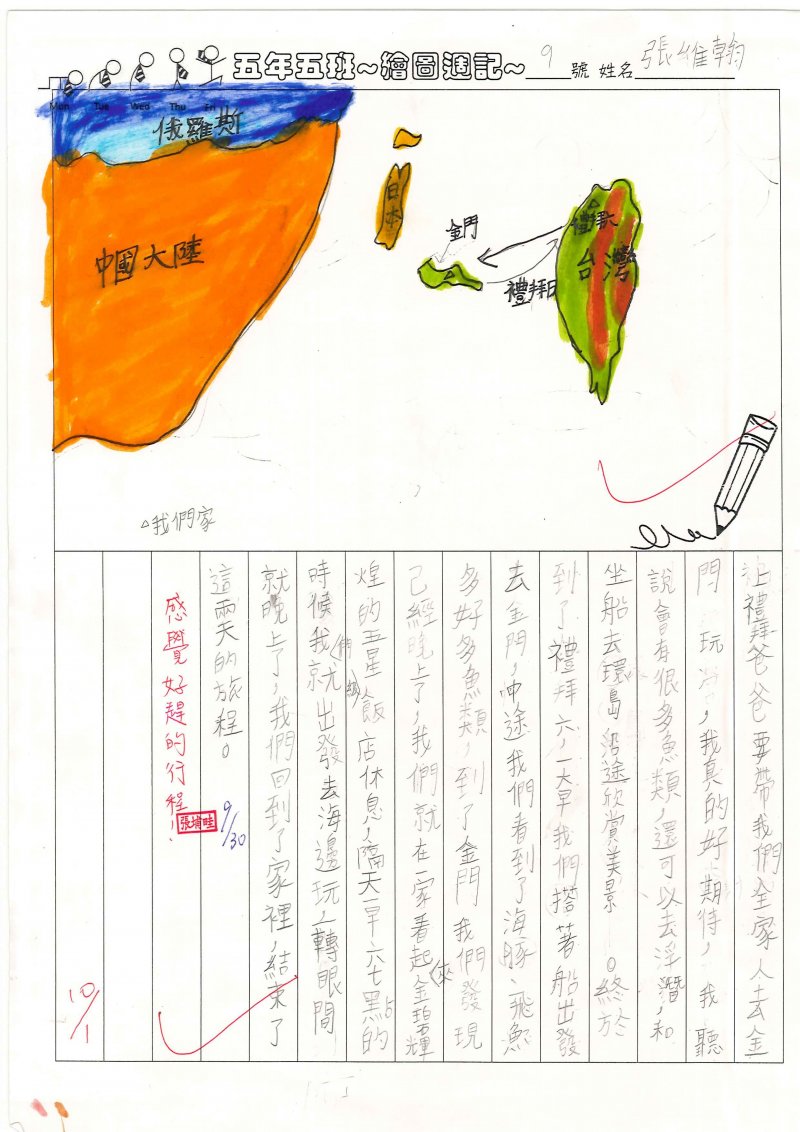 五年五班~繪圖週記~ 9 號 姓名 張維翰
Mon Tue Wed Thu Fri
俄羅斯
中國大陸
日本
金門
禮拜六
台灣
禮拜日
△我們家
上禮拜爸爸要帶我們全家人去金
門玩,我真的好期待,我聽
說會有很多魚類,還可以去浮潛,和
坐船去環島沿途欣賞美景。終於
到了禮拜六,一大早我們搭著船出發
去金門,中途我們看到了海豚、飛魚
多好多魚類,到了金門我們發現
已經晚上了,我們就在一家看起來金碧輝
煌的五星飯店休息,隔天一早六七點的
時候我們就出發去海邊玩,一轉眼間
就晚上了,我們回到了家裡,結束了
這兩天的旅程。
9/30
感覺好趕的行程!
張埔畦
10/1